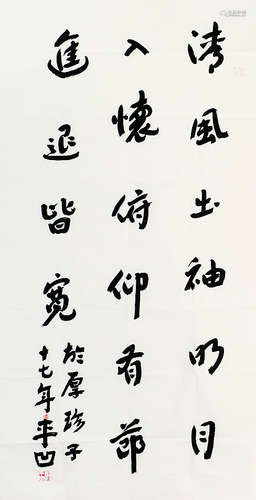 清風出袖明月
入懷俯仰有節
進退皆寬
於厚珍子
十七年平凹